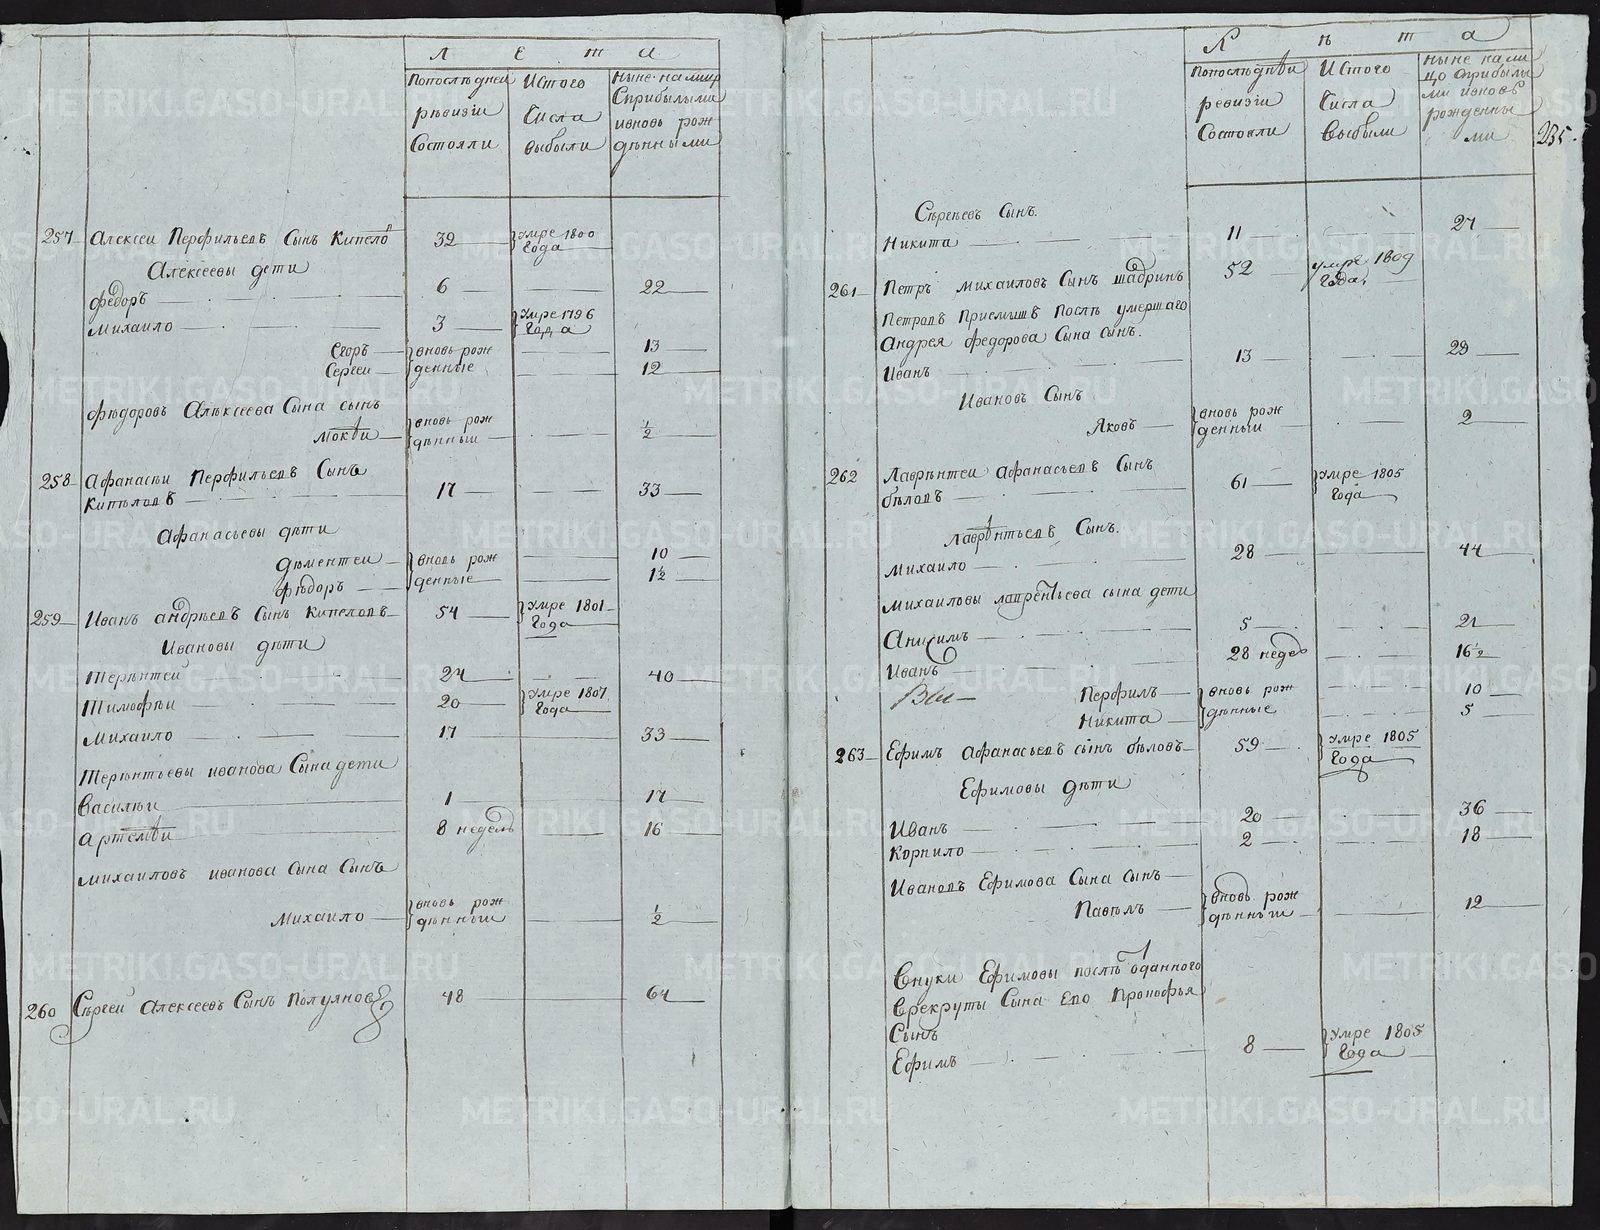 Лета
Попоследней ревизии Состояли
Истого Числа выбыли
ныне налицо Сприбылыми ивновь рожденными
257 Алексеи Перфильевъ Сынъ Кипелов 39 умре 1800 Года
Алексеевы дети
федоръ 6 22
михаило 3 умре 1796 Года
Егоръ вновь рож 13
Сергеи денные 12
Фѣдоровъ Алѣксеева Сына сынъ
Мокѣи вновь рож дѣнныи ½
258 Афанасѣи Перфильевъ Сынъ
Кипѣловъ 17 33
Афанасьевы дѣти
дѣментеи вновь рож 10
фѣдоръ денные 1½
259 Иванъ андрѣевъ Сынъ Кипеловъ 54 умре 1801 Года
Ивановы дѣти
Терѣнтеи 24 40
Тимофѣи 20 умре 1807 Года
михаило 17 33
Терѣнтьевы иванова Сына дети
василѣи 1 17
артемѣи 8 недель 16
михаиловъ иванова Сына Сынъ
михаило вновь рож дѣнныи ½
260 Сѣргеи Алексеевъ Сынъ Полуянов 48 64
Лѣта
235.
Попослѣднѣи ревизии Состояли
Истого Числа выбыли
ныне нали цо сприбылы ми ивновь рожденны ми
Сѣргѣевъ Сынъ.
Никита 11 27
261 Петръ михаиловъ Сынъ шадринъ 52 умре 1809 Года
Петровъ Приемышъ послѣ умершаго
Андрея федорова Сына Сынъ.
Иванъ 13 29
Ивановъ Сынъ
Яковъ вновь рож денныи 2
262 Лаврѣнтеи афанасьевъ Сынъ
бѣловъ 61 умре 1805 Года
лаврѣнтьевъ Сынъ.
михаило 28 44
михаиловы лаврентьева сына дети
Анисимъ 5 21
Иванъ 28 недѣ 16½
Перфилъ вновь рож 10
Никита дѣнные 5
263 Ефимъ афанасьевъ сынъ бѣловъ 59 умре 1805 Года
Ефимовы дѣти
Иванъ 20 36
Корнило 2 18
Ивановъ Ефимова Сына сынъ
Павѣлъ вновь рож дѣнныи 12
внуки Ефимовы послѣ отданного
врекруты Сына Ево Прокофья
Сынъ
Ефимъ 8 умре 1805 Года
METRIKI.GASO-URAL.RU